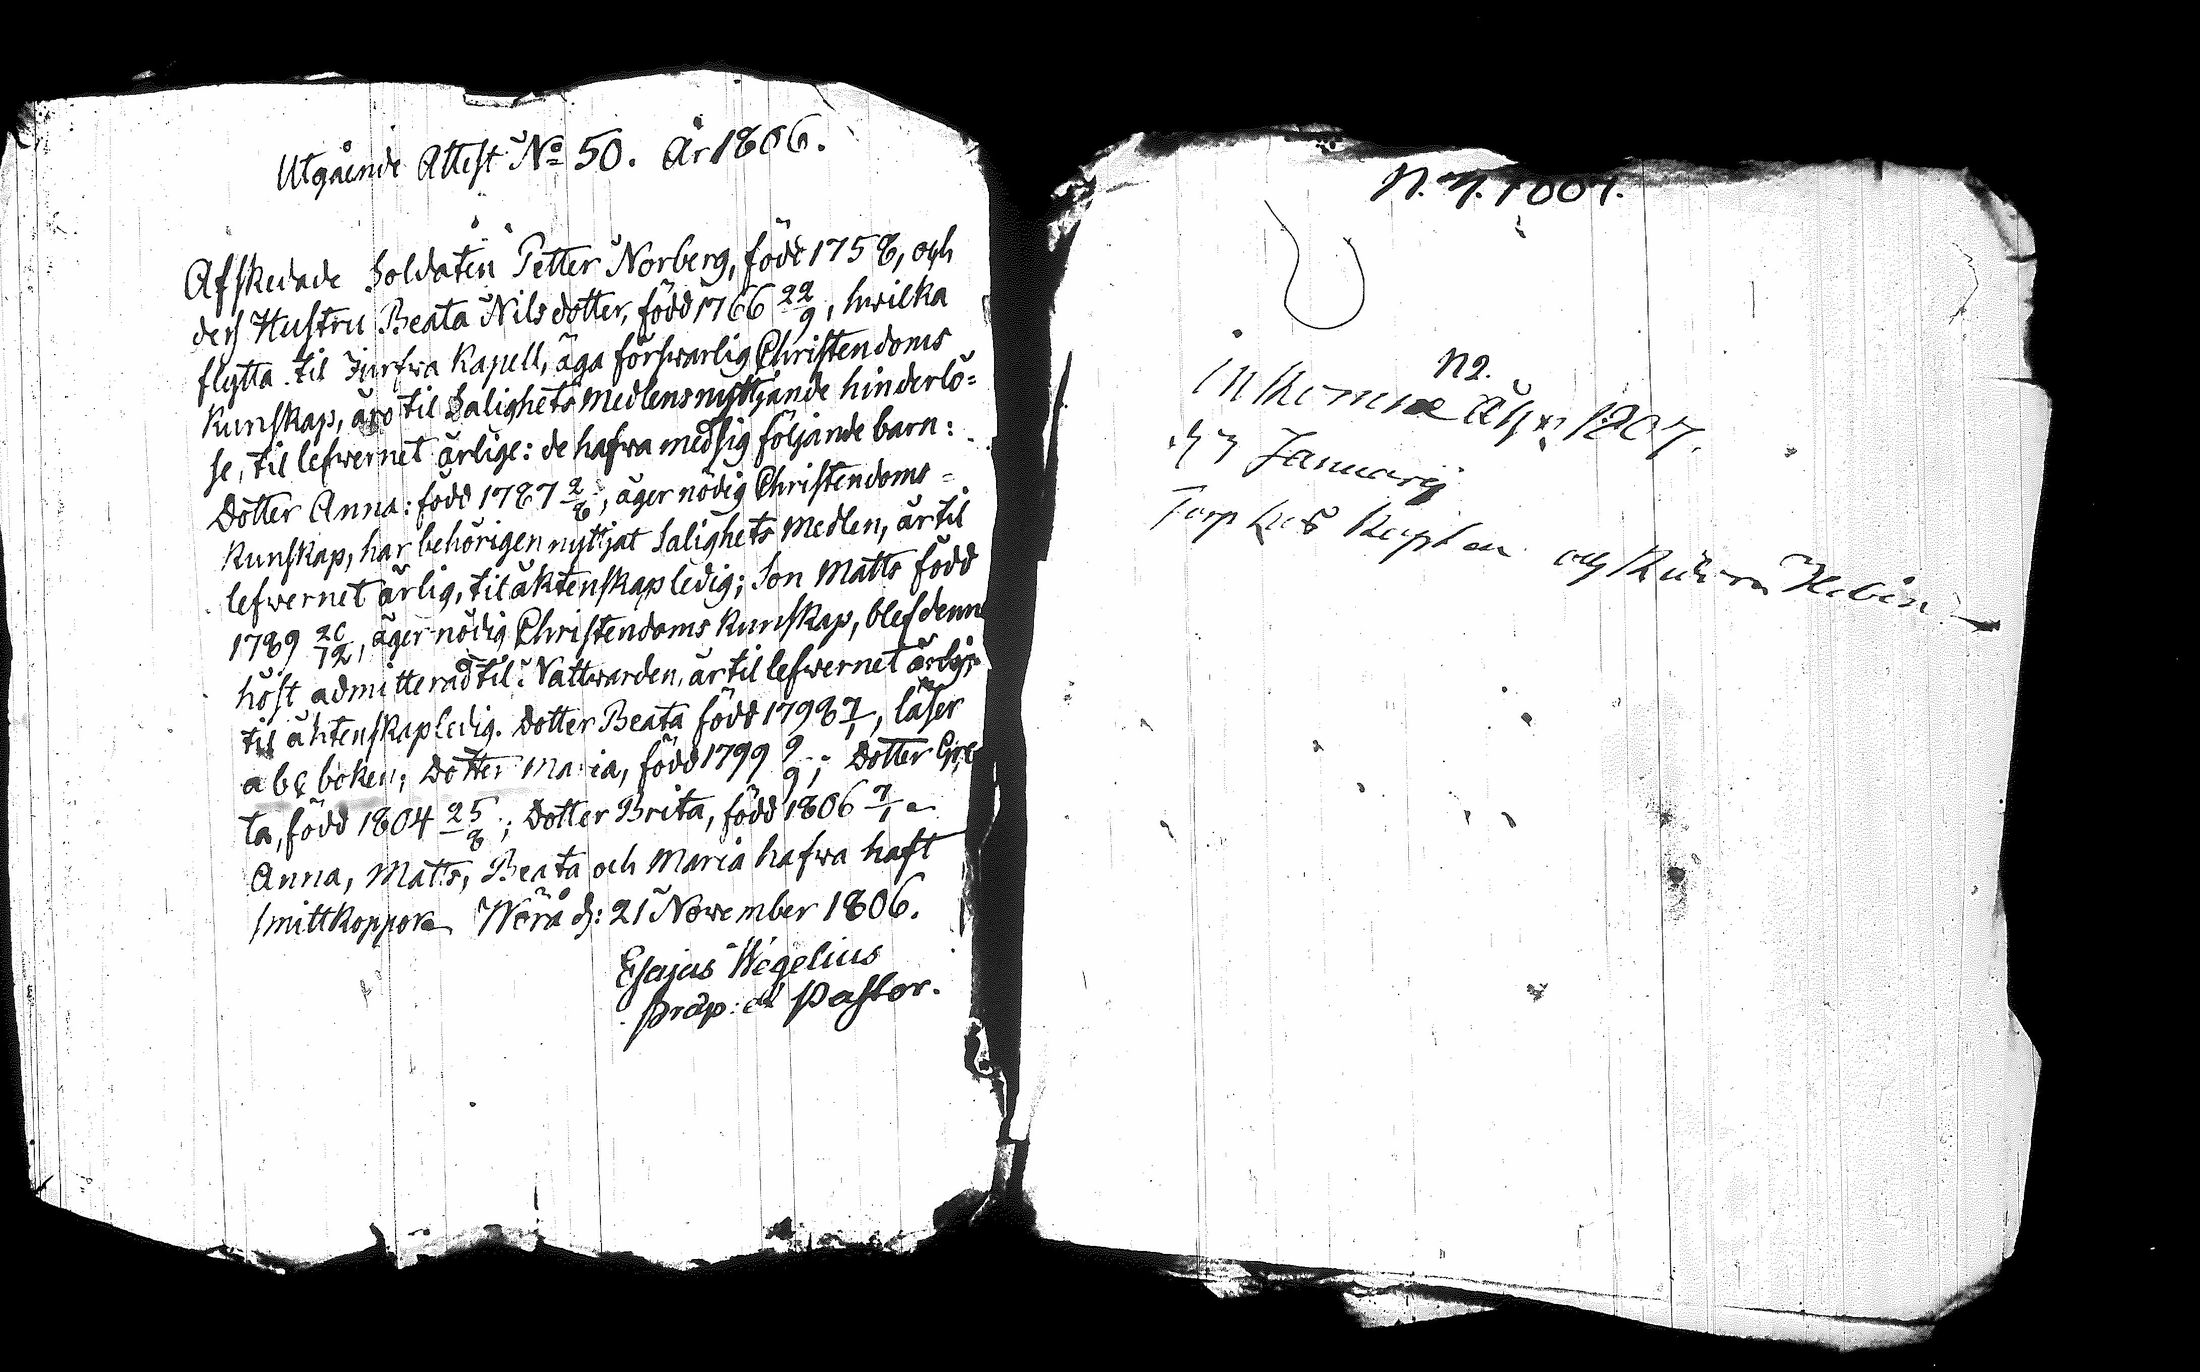 Utgående Attest No 50. År 1806.
Afskedade Soldaten Petter Norberg, född 1758, och
dess Hustru Beata Nilsdotter, född 1766 22/9, hwilka
flytta til Jurfwa Kapell, äga förswarlig Christendoms
kunskap, äro til Salighets Medlens nyttjande hinderlö=
se, til lefwernet ärlige: de hafwa med sig följande barn:
Dotter Anna: född 1787 2/8, äger nödig Christendoms=
kunskap, har behörigen nyttjat Salighets Medlen, är til
lefwernet ärlig, til äktenskap ledig; Son Matts född
1789 20/12, äger nödig Christendoms kunskap, blef denna
höst admitterad til Nattwarden, är til lefwernet ärlig,
til äktenskap ledig. Dotter Beata född 1798 7/1, läser
abc boken; Dotter Maria, född 1799 9/9; Dotter Gre
ta, född 1804 25/8; Dotter Brita, född 1806 7/1
Anna, Matts, Beata och Maria hafwa haft
smittkoppor. Wörå d: 21 November 1806.
Esajas Wegelius
Præp: et Pastor.
N2.
inkomne 1807.
Januarij